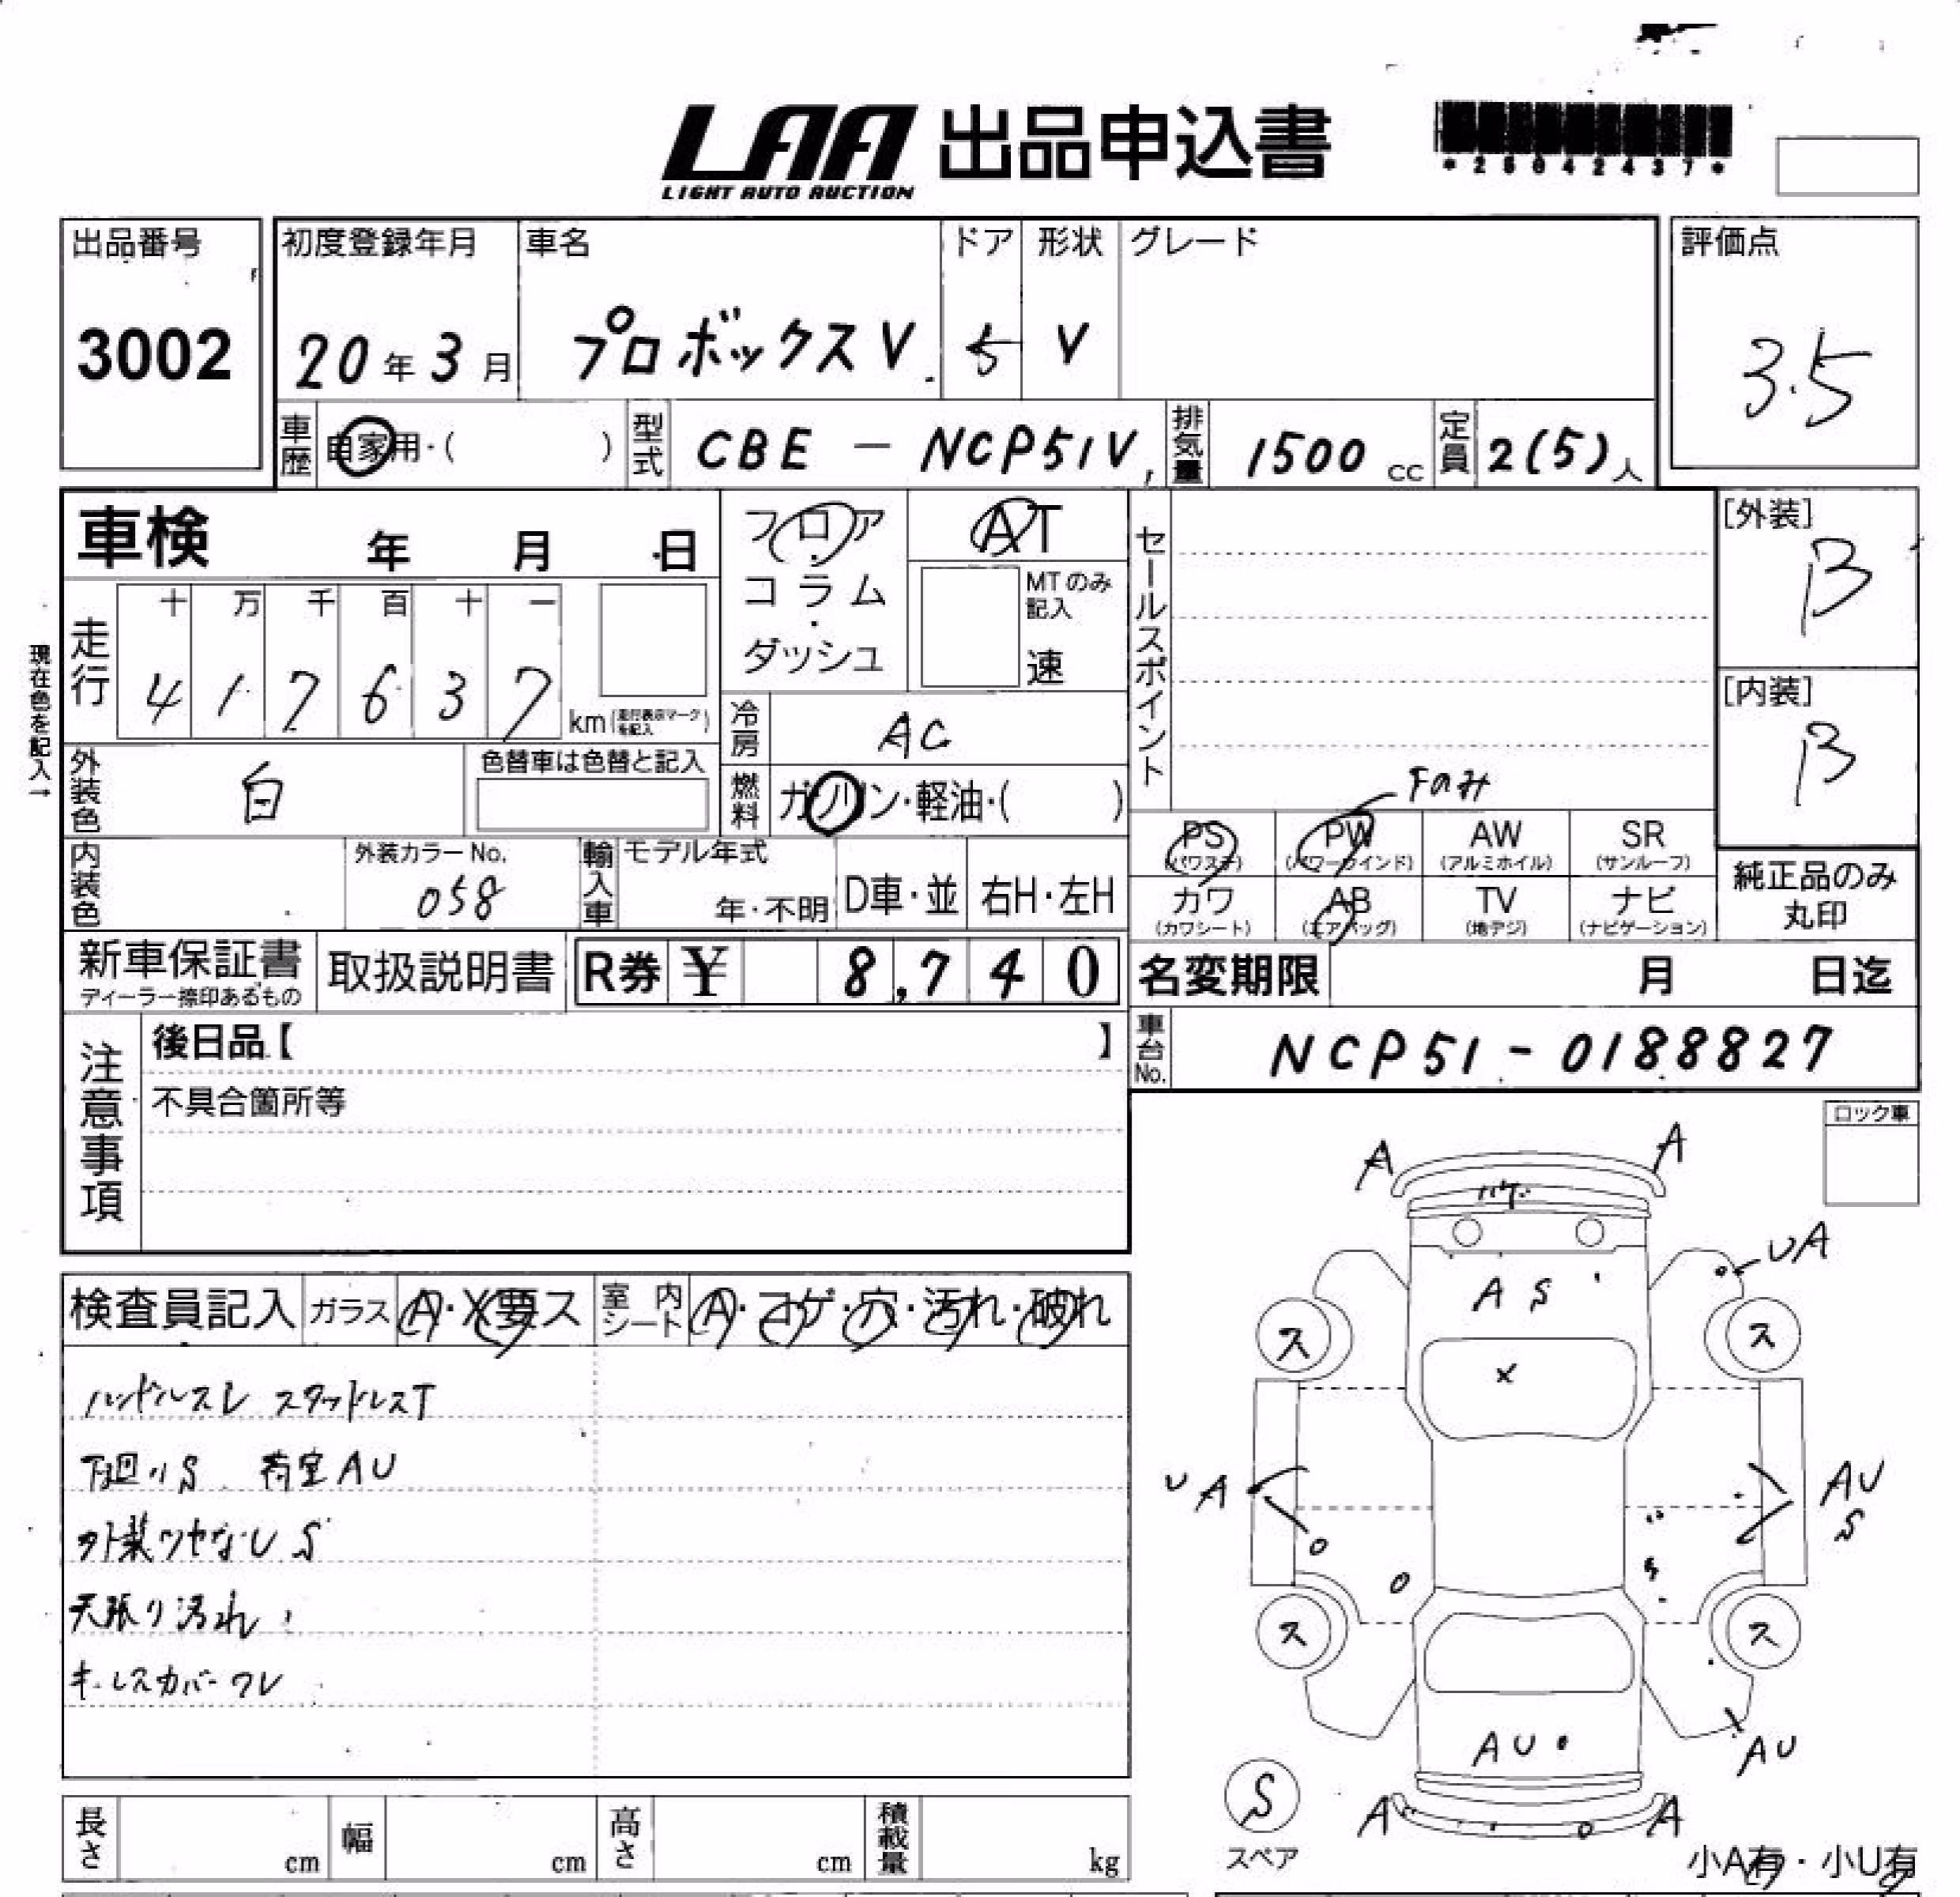 LAA 出品申込書
LIGHT AUTO AUCTION
*25042437*
出品番号
3002
初度登録年月
20年3月
車名
プロボックスV
ドア
5
形状
V
グレード
評価点
3.5
車歴
自家用・( )
型式
CBE - NCP51V
排気量
1500 cc
定員
2(5)人
車検 年 月 日
走行
十 万 千 百 十 一
4 1 7 6 3 7
km(走行表示マークを記入)
現在色を記入→
フロア・コラム・ダッシュ
AT
MTのみ記入
速
冷房
AC
燃料
ガソリン・軽油・( )
外装色
白
色替車は色替と記入
内装色
外装カラーNo.
058
輸入車
モデル年式
年・不明
D車・並
右H・左H
セールスポイント
Fのみ
PS
(パワステ)
PW
(パワーウインド)
AW
(アルミホイル)
SR
(サンルーフ)
カワ
(カワシート)
AB
(エアバッグ)
TV
(地デジ)
ナビ
(ナビゲーション)
[外装]
B
[内装]
B
純正品のみ
丸印
新車保証書
ディーラー捺印あるもの
取扱説明書
R券 ¥ 8,740
名変期限 月 日迄
車台No.
NCP51-0188827
注意事項
後日品【 】
不具合箇所等
ロック車
検査員記入
ガラス
A・X要ス
室内シート
A・コゲ・穴・汚れ・破れ
ハンドルスレ スタッドレスT
下廻りS 荷室AU
外装ツヤなし S
天張り汚れ
キーレスカバーワレ
A
A
ハゲ
UA
A S
ス
ス
X
UA
AU
S
ス
ス
AU
AU
S
スペア
A
A
小A有・小U有
長さ cm
幅 cm
高さ cm
積載量 kg